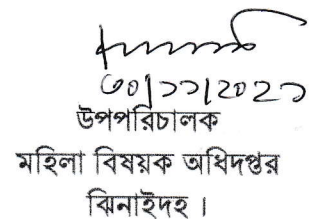 ৩০/১১/২০২১
উপপরিচালক
মহিলা বিষয়ক অধিদপ্তর
ঝিনাইদহ ।